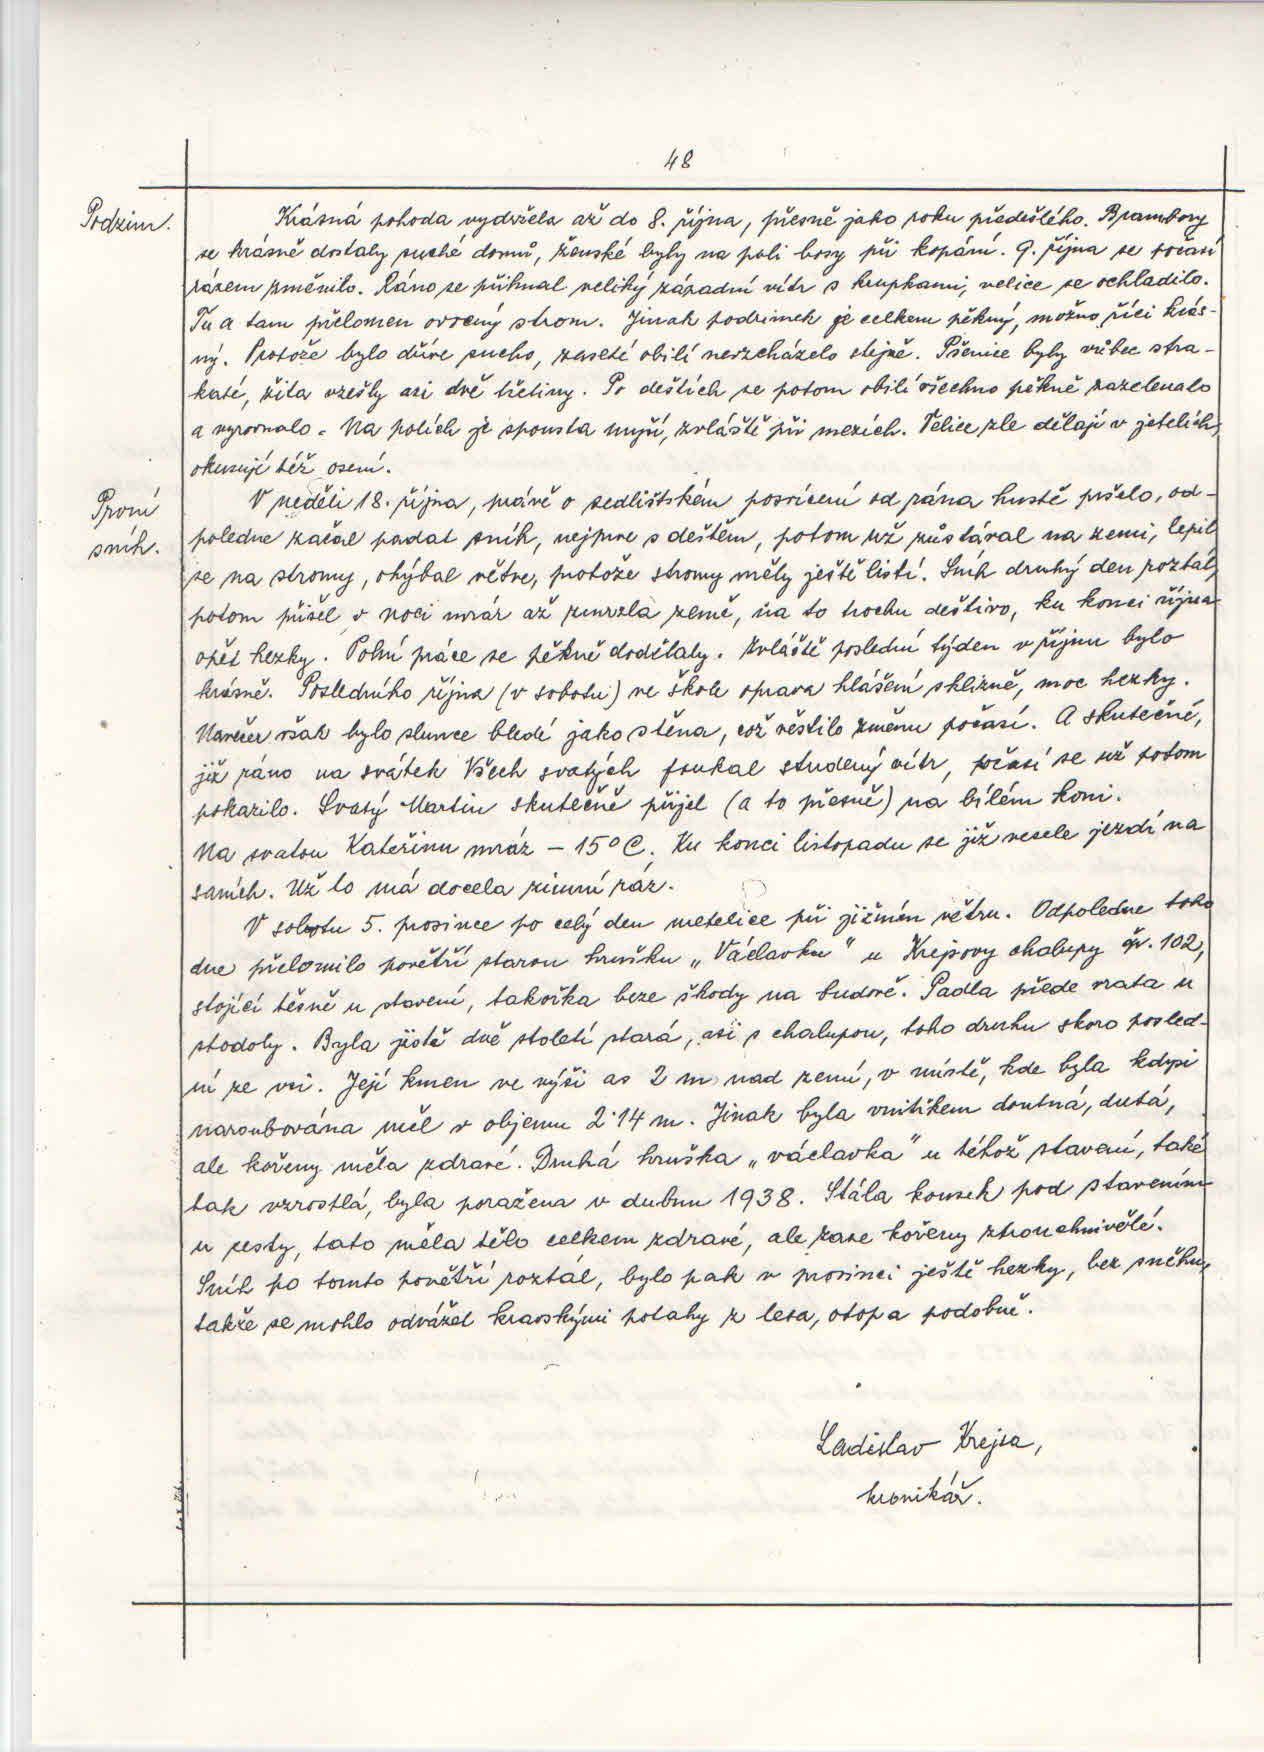 48
Podzim.
Krásná pohoda vydržela až do 8. října, přesně jako roku předešlého. Brambory
se krásně dostaly suché domů, ženské byly na poli bosy při kopání. 9. října se počasí
rázem změnilo. Ráno se přihnal veliký západní vítr s krupkami, velice se ochladilo.
Tu a tam přelomen ovocný strom. Jinak podzimek je celkem pěkný, možno říci krás-
ný. Protože bylo dříve sucho, zaseté obilí nevzcházelo stejně. Pšenice byly vůbec stra-
katé, žita vzešly asi dvě třetiny. Po deštích se potom obilí všechno pěkně zazelenalo
a vyrovnalo. Na polích je spousta myší, zvláště při mezích. Velice zle dělají v jetelích,
okusují též osení.
První
sníh.
V neděli 18. října, právě o sedlištském posvícení od rána hustě pršelo, od-
poledne začal padat sníh, nejprve s deštěm, potom už zůstával na zemi, lepil
se na stromy, ohýbal větve, protože stromy měly ještě listí. Sníh druhý den roztál,
potom přišel v noci mráz až zmrzla země, na to trochu deštivo, ku konci října
opět hezky. Polní práce se pěkně dodělaly. Zvláště poslední týden v říjnu bylo
krásně. Posledního října (v sobotu) ve škole oprava hlášení sklizně, moc hezky.
Navečer však bylo slunce bledé jako stěna, což věstilo změnu počasí. A skutečně,
již ráno na svátek Všech svatých foukal studený vítr, počasí se už potom
pokazilo. Svatý Martin skutečně přijel (a to přesně) na bílém koni.
Na svatou Kateřinu mráz – 15°C. Ku konci listopadu se již vesele jezdí na
saních. Už to má docela zimní ráz.
V sobotu 5. prosince po celý den metelice při jižním větru. Odpoledne toho
dne přelomilo povětří starou hrušku „Václavku" u Krejsovy chalupy čp. 102,
stojící těsně u stavení, takořka beze škody na budově. Padla přede vrata u
stodoly. Byla jistě dvě století stará, asi s chalupou, toho druhu skoro posled-
ní ze vsi. Její kmen ve výši as 2 m nad zemí, v místě, kde byla kdysi
naroubována měl v objemu 2·14 m. Jinak byla vnitřkem doutná, dutá,
ale kořeny měla zdravé. Druhá hruška „václavka" u téhož stavení, také
tak vzrostlá, byla poražena v dubnu 1938. Stála kousek pod stavením
u cesty, tato měla tělo celkem zdravé, ale zase kořeny ztrouchnivělé.
Sníh po tomto povětří roztál, bylo pak v prosinci ještě hezky, bez sněhu,
takže se mohlo odvážet kravskými potahy z lesa, otop a podobně.
Ladislav Krejsa,
kronikář.